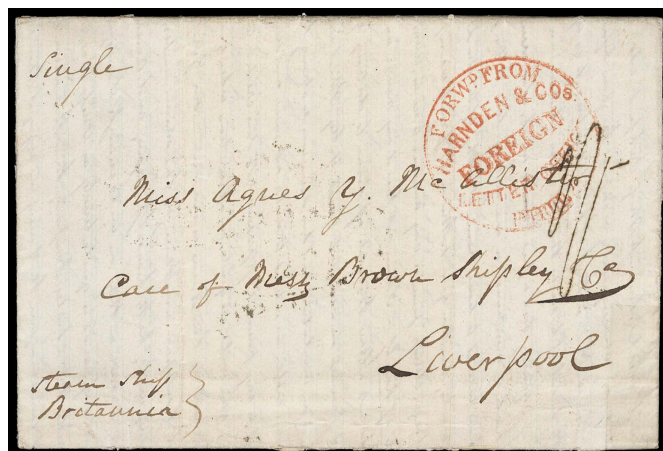 Single
FORWD. FROM
HARNDEN & COS.
FOREIGN
LETTER
Miss Agnes Y. McCallister
Care of Messrs Brown Shipley & Co
Liverpool
Steam Ship
Britannia